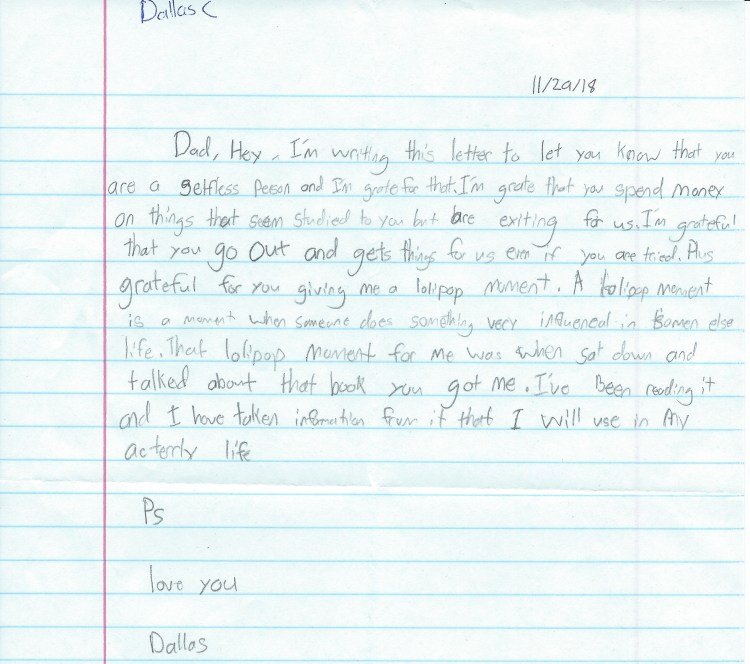 Dallas C
11/29/18
Dad, Hey, I'm writing this letter to let you know that you
are a selfless Person and I'm grate for that. I'm grate that you spend money
on things that seem studied to you but are exiting for us. I'm grateful
that you go out and gets things for us even if you are tried. Plus
grateful for you giving me a lolipop moment. A lolipop moment
is a moment when someone does something very influenced in somen else
life. That lolipop moment for me was when sat down and
talked about that book you got me. I've Been reading it
and I have taken information from it that I will use in my
acterrly life
Ps
love you
Dallas